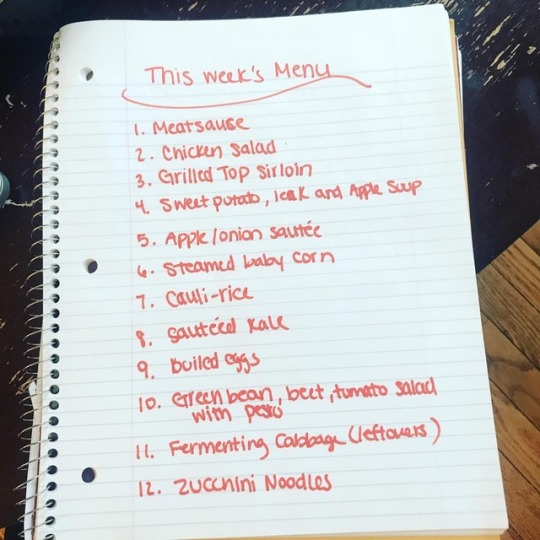 This week's Menu
1. Meatsause
2. Chicken Salad
3. Grilled Top Sirloin
4. Sweet potato, leak and Apple Soup
5. Apple/onion sautée
6. Steamed baby corn
7. Cauli-rice
8. Sautéed Kale
9. boiled eggs
10. Green bean, beet, tomato salad
with pesto
11. Fermenting Cabbage (leftovers)
12. Zucchini Noodles